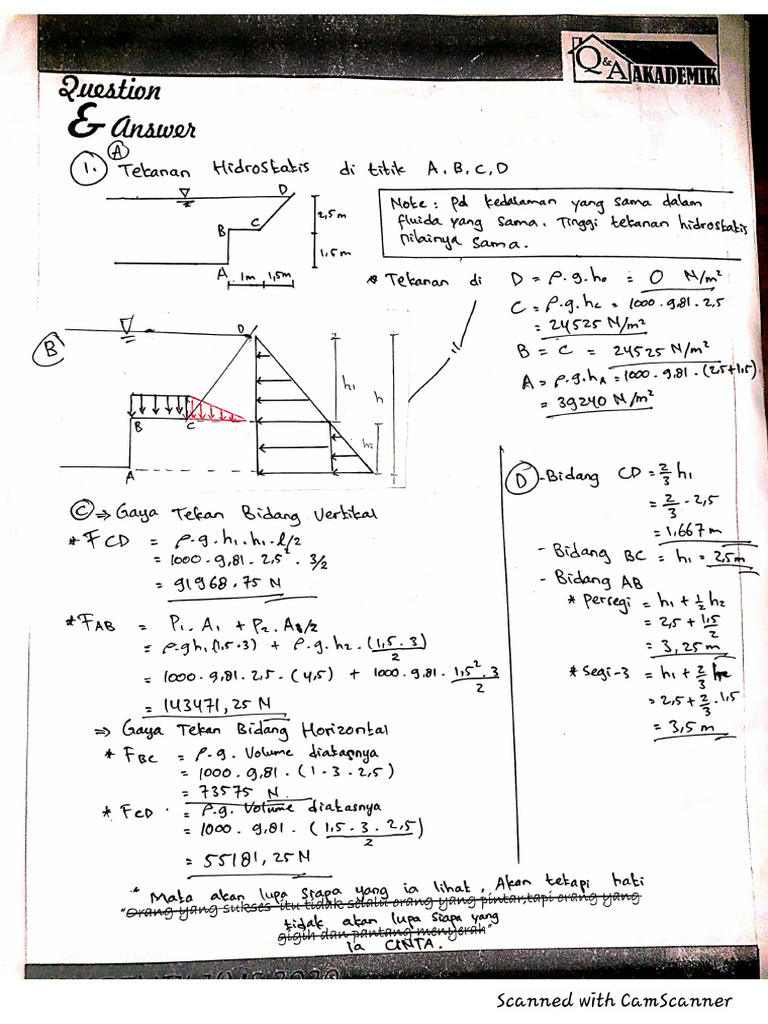 Question
& Answer
Q&A AKADEMIK
A
1. Tekanan Hidrostatis di titik A, B, C, D
D
2,5 m
B
C
1,5 m
A
1m 1,5m
Note : Pd kedalaman yang sama dalam
fluida yang sama. Tinggi tekanan hidrostatis
nilainya sama.
* Tekanan di D = ρ.g.h₀ = 0 N/m²
C = ρ.g.hc = 1000.9,81.2,5
= 24525 N/m²
B = C = 24525 N/m²
A = ρ.g.hA = 1000.9,81.(2,5+1,5)
= 39240 N/m²
B
D
h₁
h
h₂
B
C
A
C ⇒ Gaya Tekan Bidang Vertikal
* FCD = ρ.g.h₁.h₁.l/2
= 1000.9,81.2,5². 3/2
= 91968.75 N
* FAB = P₁.A₁ + P₂.A₂/2
= ρ.gh₁(1,5.3) + ρ.g.h₂.(1,5.3)/2
= 1000.9,81.2,5.(4,5) + 1000.9,81.1,5².3/2
= 143471,25 N
⇒ Gaya Tekan Bidang Horizontal
* FBC = ρ.g. Volume diatasnya
= 1000.9,81.(1.3.2,5)
= 73575 N
* FCD = ρ.g. Volume diatasnya
= 1000.9,81.(1,5.3.2,5)/2
= 55181,25 N
D - Bidang CD = 2/3 h₁
= 2/3 . 2,5
= 1,667 m
- Bidang BC = h₁ = 2,5 m
- Bidang AB
* Persegi = h₁ + 1/2 h₂
= 2,5 + 1,5/2
= 3,25 m
* Segi-3 = h₁ + 2/3 h₂
= 2,5 + 2/3 . 1,5
= 3,5 m
" Mata akan lupa siapa yang ia lihat, Akan tetapi hati
"Orang yang sukses itu tidak selalu orang yang pintar,tapi orang yang
tidak akan lupa siapa yang
gigih dan pantang menyerah"
ia CINTA.
Scanned with CamScanner